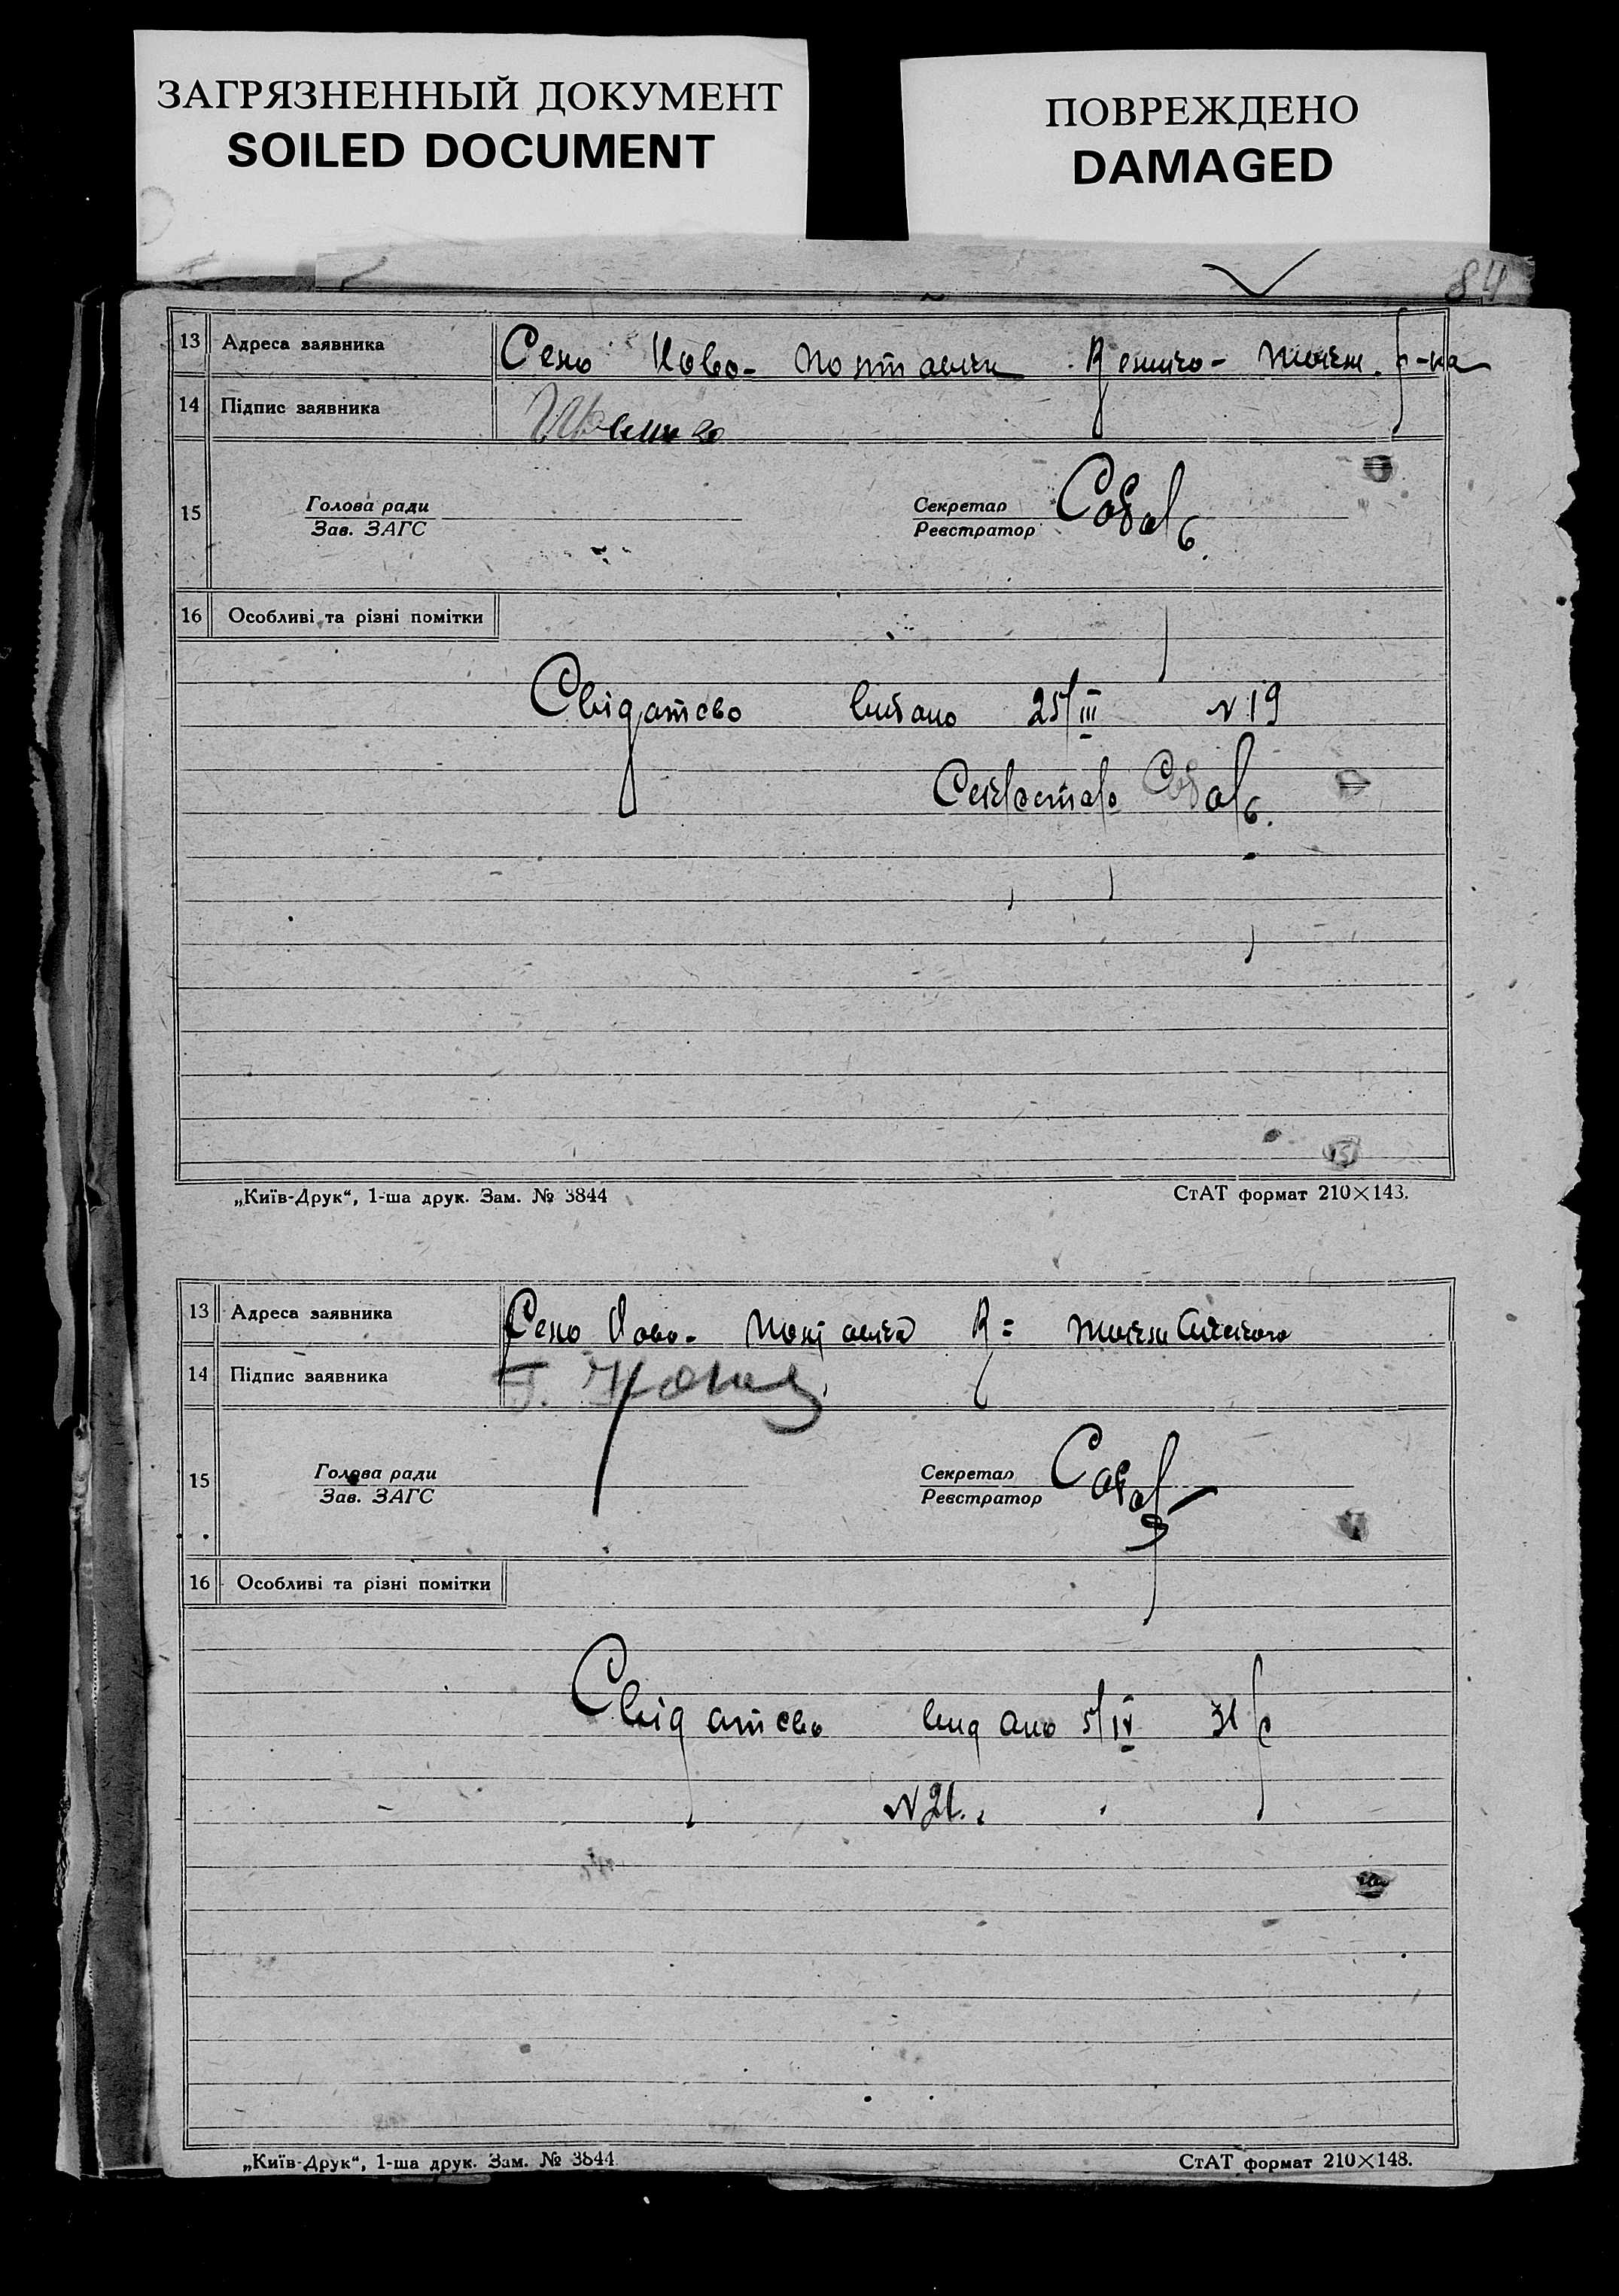 ЗАГРЯЗНЕННЫЙ ДОКУМЕНТ
SOILED DOCUMENT
ПОВРЕЖДЕНО
DAMAGED
84
13 Адреса заявника Село Ново-Полтавки
14 Підпис заявника
15 Голова ради Зав. ЗАГС Секретар Реєстратор
16 Особливі та різні помітки
Свідатсво видано 25/III N 19
Секретар
„Київ-Друк“, 1-ша друк. Зам. № 3844 СтАТ формат 210×143.
13 Адреса заявника Село Ново-Полтавка
14 Підпис заявника
15 Голова ради Зав. ЗАГС Секретар Реєстратор
16 Особливі та різні помітки
Свідатсво видано 5/IV 31 р
N 21.
„Київ-Друк“, 1-ша друк. Зам. № 3844 СтАТ формат 210×148.